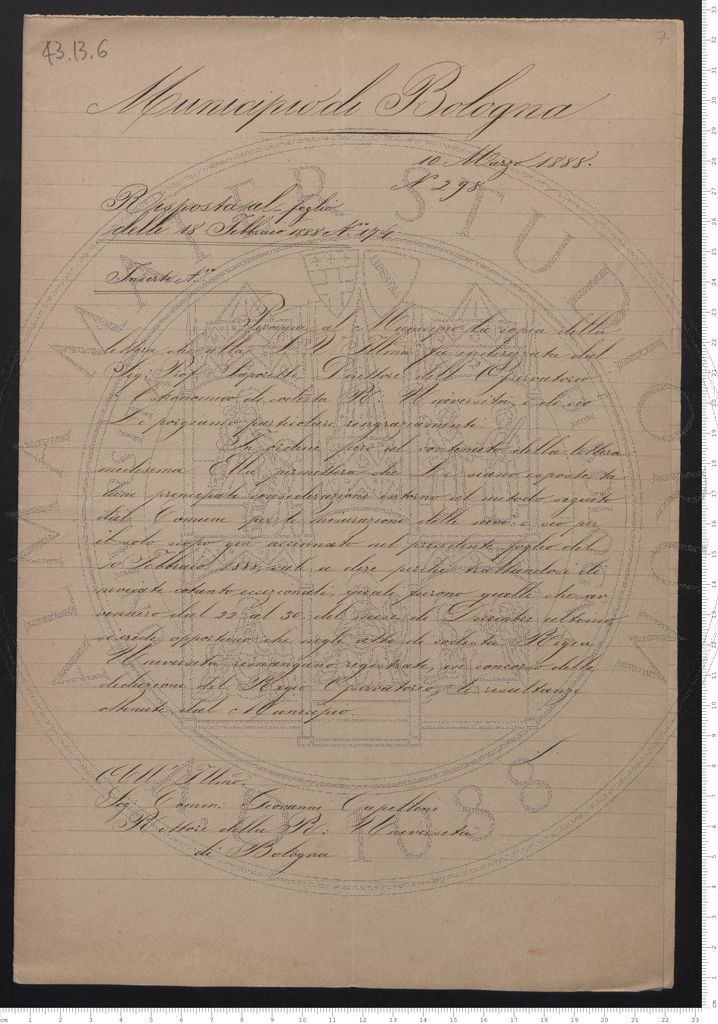 43.13.6
7
Municipio di Bologna
10 Marzo 1888.
N. 298
Risposta al foglio
delli 18 Febbraio 1888 N. 174
Inserti N.
al Municipio la copia della
lettera che alla S. V. Illma fu indirizzata dal
Sig. Prof. Saporetti Direttore dell'Osservatorio
Astronomico di codesta R. Università, e di ciò
Le porgiamo particolari ringraziamenti.
In ordine però al contenuto della lettera
medesima Ella permetterà che Le siano esposte ta
lune principali considerazioni intorno al metodo seguito
dal Comune per la misurazione delle nevi: e ciò per
il solo scopo già accennato nel precedente foglio del
10 Febbraio 1888, vale a dire perchè trattandosi di
nevicate cotanto eccezionali, quali furono quelle che av
vennero dal 22 al 30 del mese di Dicembre ultimo,
si crede opportuno che negli atti di codesta Regia
Università rimangano registrate, in concorso delle
deduzioni del Regio Osservatorio, le resultanze
ottenute dal Municipio.
All' Illmo.
Sig. Comm. Giovanni Capellini
Rettore della R. Università
di Bologna
ALMA MATER STUDIORUM
A.D. 1088